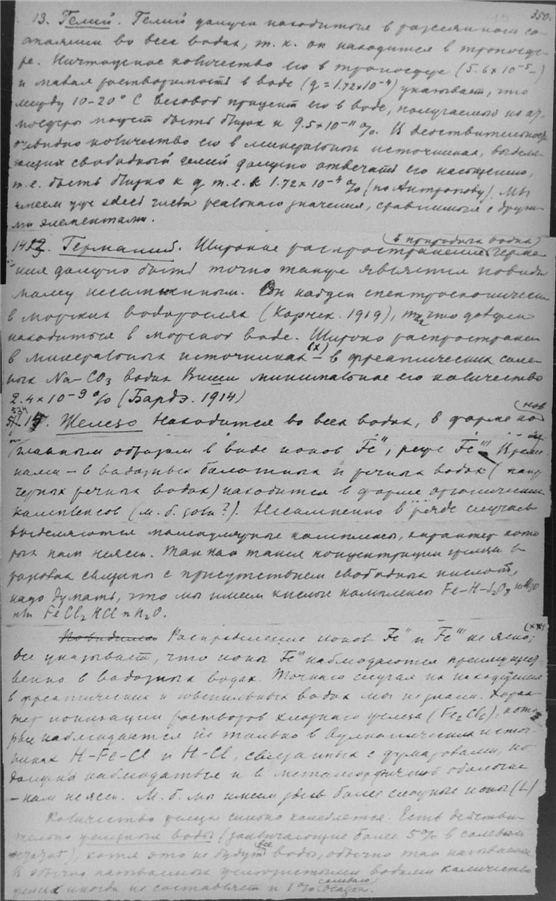 350.
13. Гелий. Гелий должен находиться в рассеянном со-
стоянии во всех водах, т. к. он находится в тропосфе-
ре. Ничтожное количество его в тропосфере (5.6×10⁻⁵)
и малая растворимость в воде (q=1.72×10⁻⁴) указывает, что
между 10-20° С весовой процент его в воде, получаемого из ат-
мосферы может быть близок к 9.5×10⁻¹¹%. И действительно
очевидно количество его в минеральных источниках, выделя-
ющих свободный гелий должно отвечать его насыщению,
т.е. быть близко к q т.е. к 1.72×10⁻⁴ % (по Антропову). Мы
имеем уже здесь числа реального значения, сравнимые с други-
ми элементами.
в природных водах
14. Германий. Широкое распространение герма-
ния должно быть точно также является повиди-
мому несомненным. Он найден спектроскопически
в морских водорослях (Корнек. 1919), что должен
находиться в морской воде. Широко распространен
в минеральных источниках - в фреатических соле-
ных Na-CO₃ водах Виши минимальное его количество
2.4×10⁻⁹% (Бардэ. 1914)
15. Железо находится во всех водах, в форме
главным образом в виде ионов Fe'', реже Fe'''
- в вадозных болотных и речных водах (напр.
черных речных водах) находится в форме органических
комплексов (м. б. золи?). Несомненно в ряде случаев
выделяются молекулярные комплексы, характер кото-
рых нам неясен. Так как такие концентрации железа в
связаны с присутствием свободных кислот,
надо думать, что мы имеем кислые комплексы Fe-H-S₂O₃
FeCl₂ HCl n H₂O.
Распределение ионов Fe'' и Fe''' не ясно;
все указывает, что ионы Fe'' наблюдаются преимущест-
венно в вадозных водах. Точного случая их нахождения
в фреатических и ювенильных водах мы не знаем. Харак-
тер ионизации растворов хлорного железа (Fe₂Cl₆), кото-
рые наблюдаются не только в вулканических источ-
никах H-Fe-Cl и H-Cl, связанных с фумаролами, но
должно наблюдаться и в метаморфической оболочке
- нам неясен. М.б. мы имеем здесь более сложные ионы (L)
Количество железа сильно колеблется. Есть действи-
тельно железные воды (заключающие более 5% в солевом
хотя это не будут все воды, обычно так называемые
В обычно называемых железистыми водами количество
железа иногда не составляет и 1% солевого осадка.